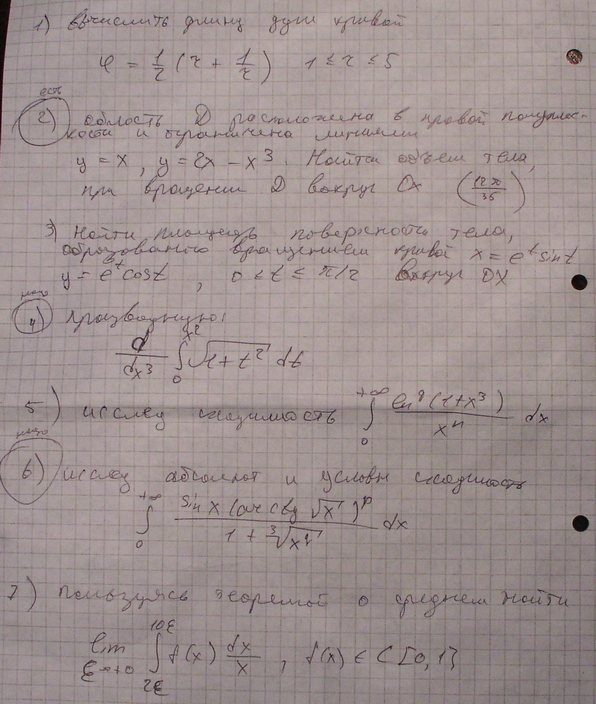 1) Вычислить длину дуги кривой
φ = 1/2 (r + 1/r) 1 ≤ r ≤ 5
есть
2) область D расположена в правой полуплос-
кости и ограничена линиями
y = x, y = 2x - x³. Найти объем тела,
при вращении D вокруг Ox (12π/35)
3) Найти площадь поверхности тела,
образованного вращением кривой x = e^t sin t
y = e^t cos t, 0 < t ≤ π/2 вокруг OX
надо
4) производную:
d/dx³ ∫₀^{x²} √(1+t²) dt
5) исслед сходимость ∫₀^{+∞} ln^q(1+x³)/x^n dx
надо
6) исслед абсолют и условн сходимость
∫₀^{+∞} sin x (arcctg √x)^p / (1 + ∛x²) dx
7) Пользуясь теоремой о среднем найти
lim_{ε→+0} ∫_{2ε}^{10ε} f(x) dx/x, f(x) ∈ C[0,1]